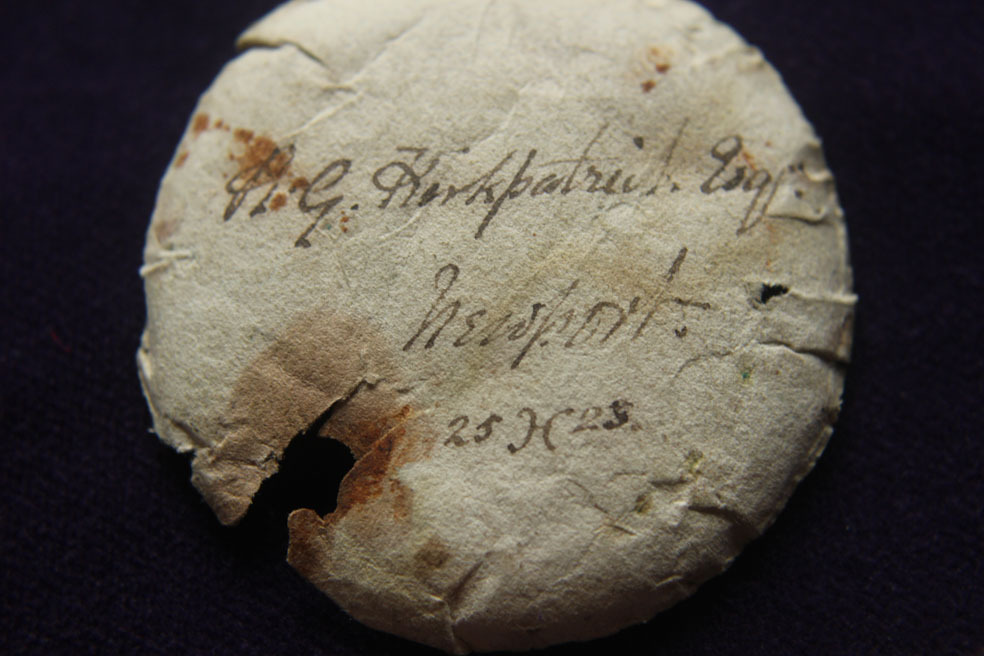 G. Kirkpatrick Esqr.
Newport.
25 H 28.